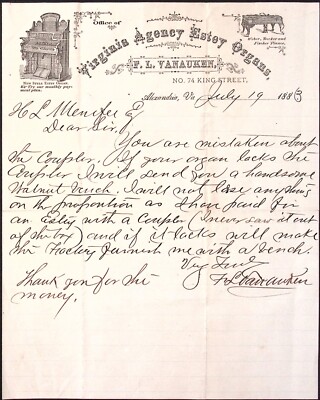 Office of
Virginia Agency Estey Organs.
Weber, Decker and
Fischer Pianos.
F. L. VANAUKEN,
NO. 74 KING STREET,
Alexandria, Va July 19 1883
H L Menefee Esq
Dear Sir,
You are mistaken about
the Coupler. If your organ lacks the
Coupler I will send you a handsome
Walnut bench. I will not lose anything
on the proposition as I have paid for
an Estey with a Coupler (I never saw it out
of the box) and if it lacks will make
the Factory furnish me with a bench.
Very Truly
F L Vanauken
Thank you for the
money.